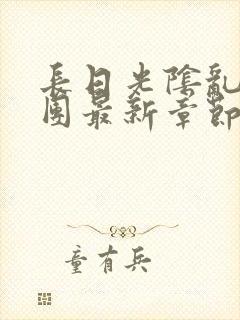 長日光陰亂
團最新章節
童有兵